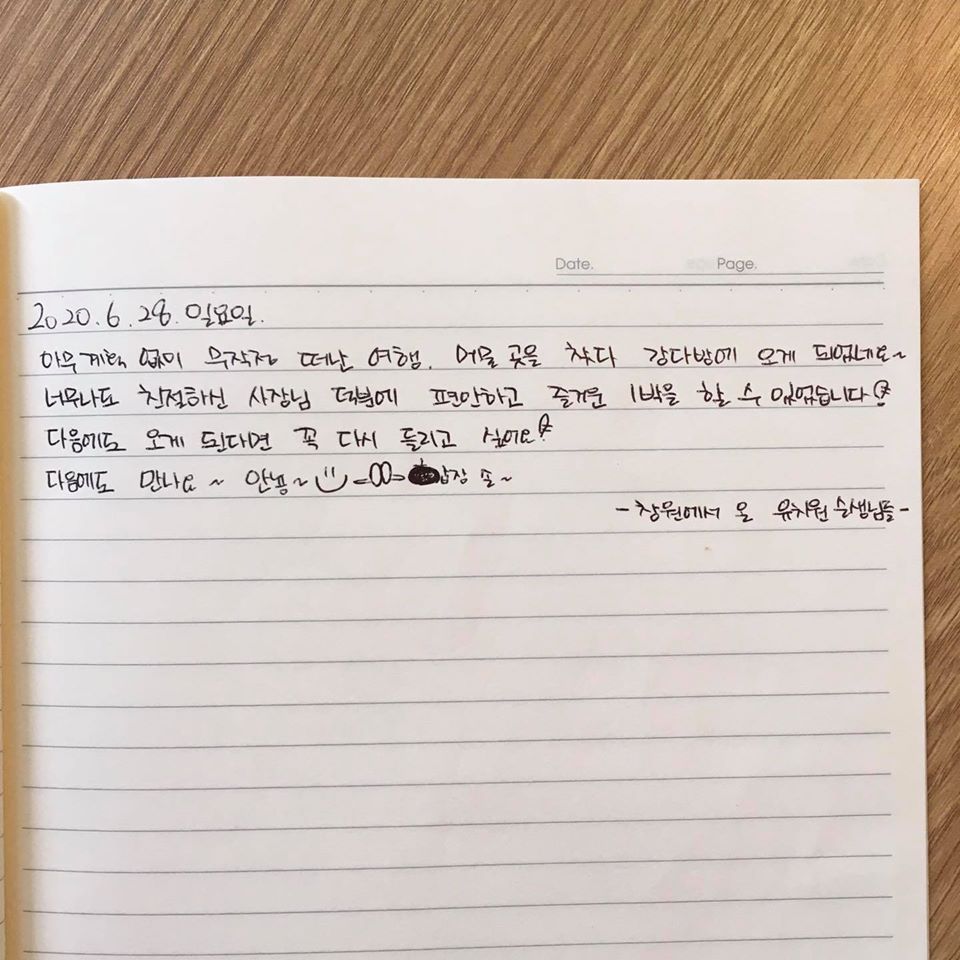 Date. Page.
2020. 6. 28. 일요일.
아무 계획 없이 무작정 떠난 여행. 머물 곳을 찾다 강다방에 오게 되었네요~
너무나도 친절하신 사장님 덕분에 편안하고 즐거운 1박을 할 수 있었습니다!
다음에도 오게 된다면 꼭 다시 들리고 싶어요!
다음에도 만나요~ 안뇽~
-창원에서 온 유치원 슨생님들-